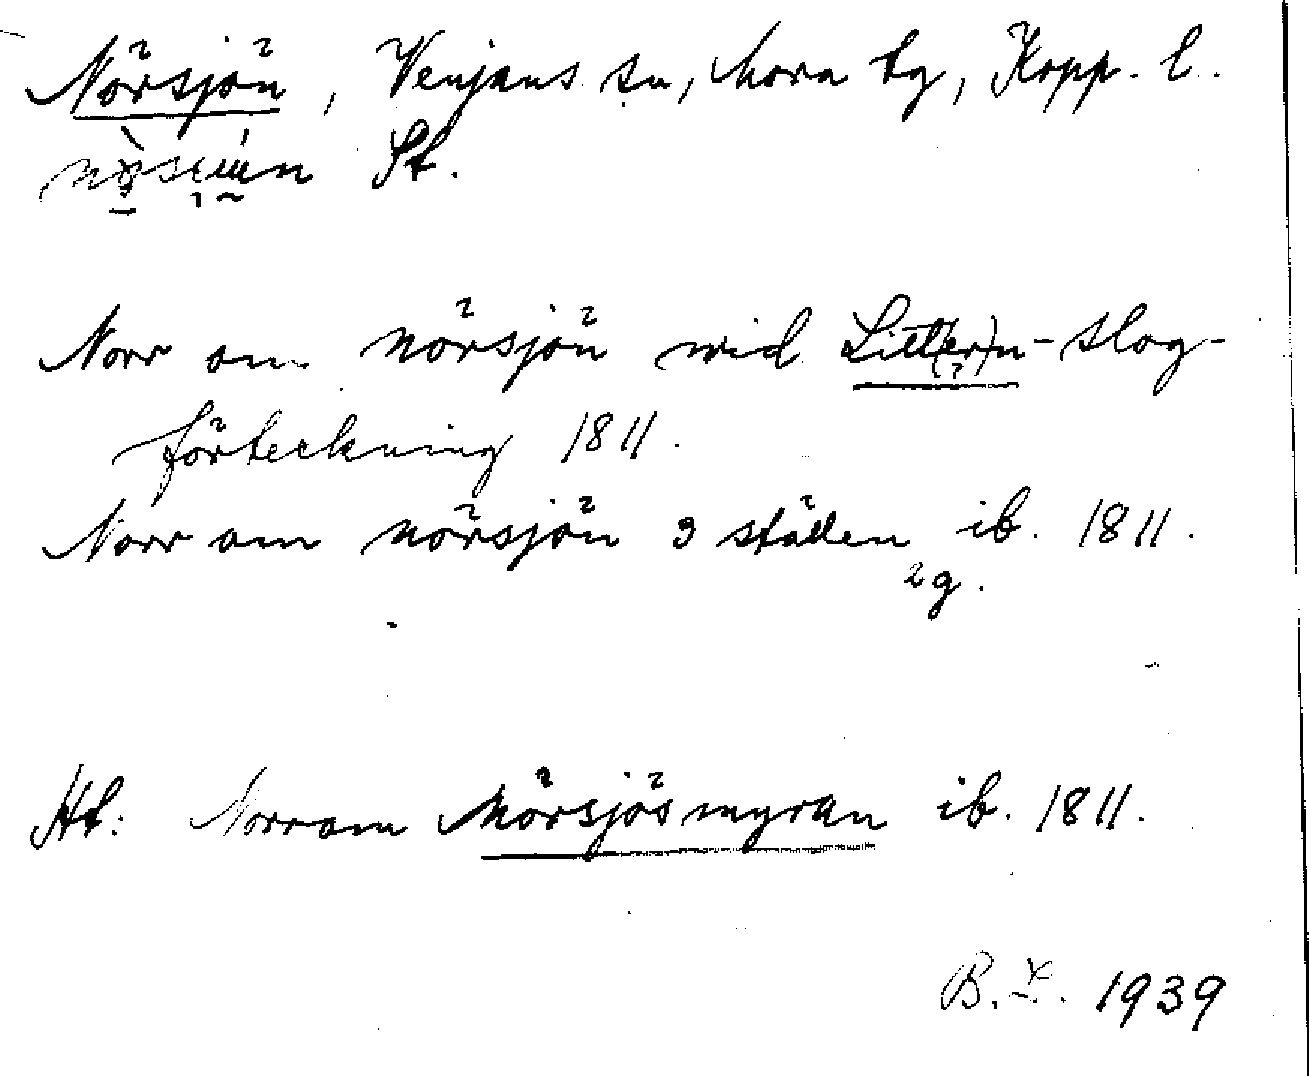 Nörsjön, Venjans sn, Mora tg, Kopp. l.
St.
Norr om nörsjön wid Litt(er)n - slog-
(?)
förteckning 1811.
Norr om nörsjön 3 ställen ib. 1811.
2 g.
Ht: Norr om Mörsjösmyran ib. 1811.
1939